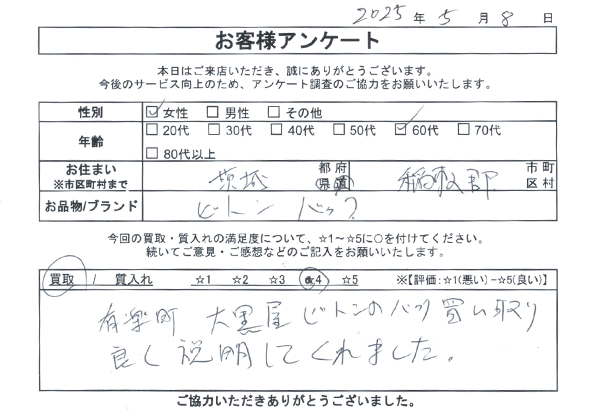 2025 年 5 月 8 日
お客様アンケート
本日はご来店いただき、誠にありがとうございます。
今後のサービス向上のため、アンケート調査のご協力をお願いいたします。
性別 ☑ 女性 □ 男性 □ その他
年齢 □ 20代 □ 30代 □ 40代 □ 50代 ☑ 60代 □ 70代
□ 80代以上
お住まい ※市区町村まで 茨城 都 府 県 道 稲敷郡 市 町 区 村
お品物/ブランド ビトン バック
今回の買取・質入れの満足度について、☆1～☆5に○を付けてください。
続いてご意見・ご感想などのご記入をお願いします。
買取 / 質入れ ☆1 ☆2 ☆3 ☆4 ☆5 ※【評価:☆1(悪い)-☆5(良い)】
有楽町 大黒屋 ビトンのバック買い取り
良く説明してくれました。
ご協力いただきありがとうございました。